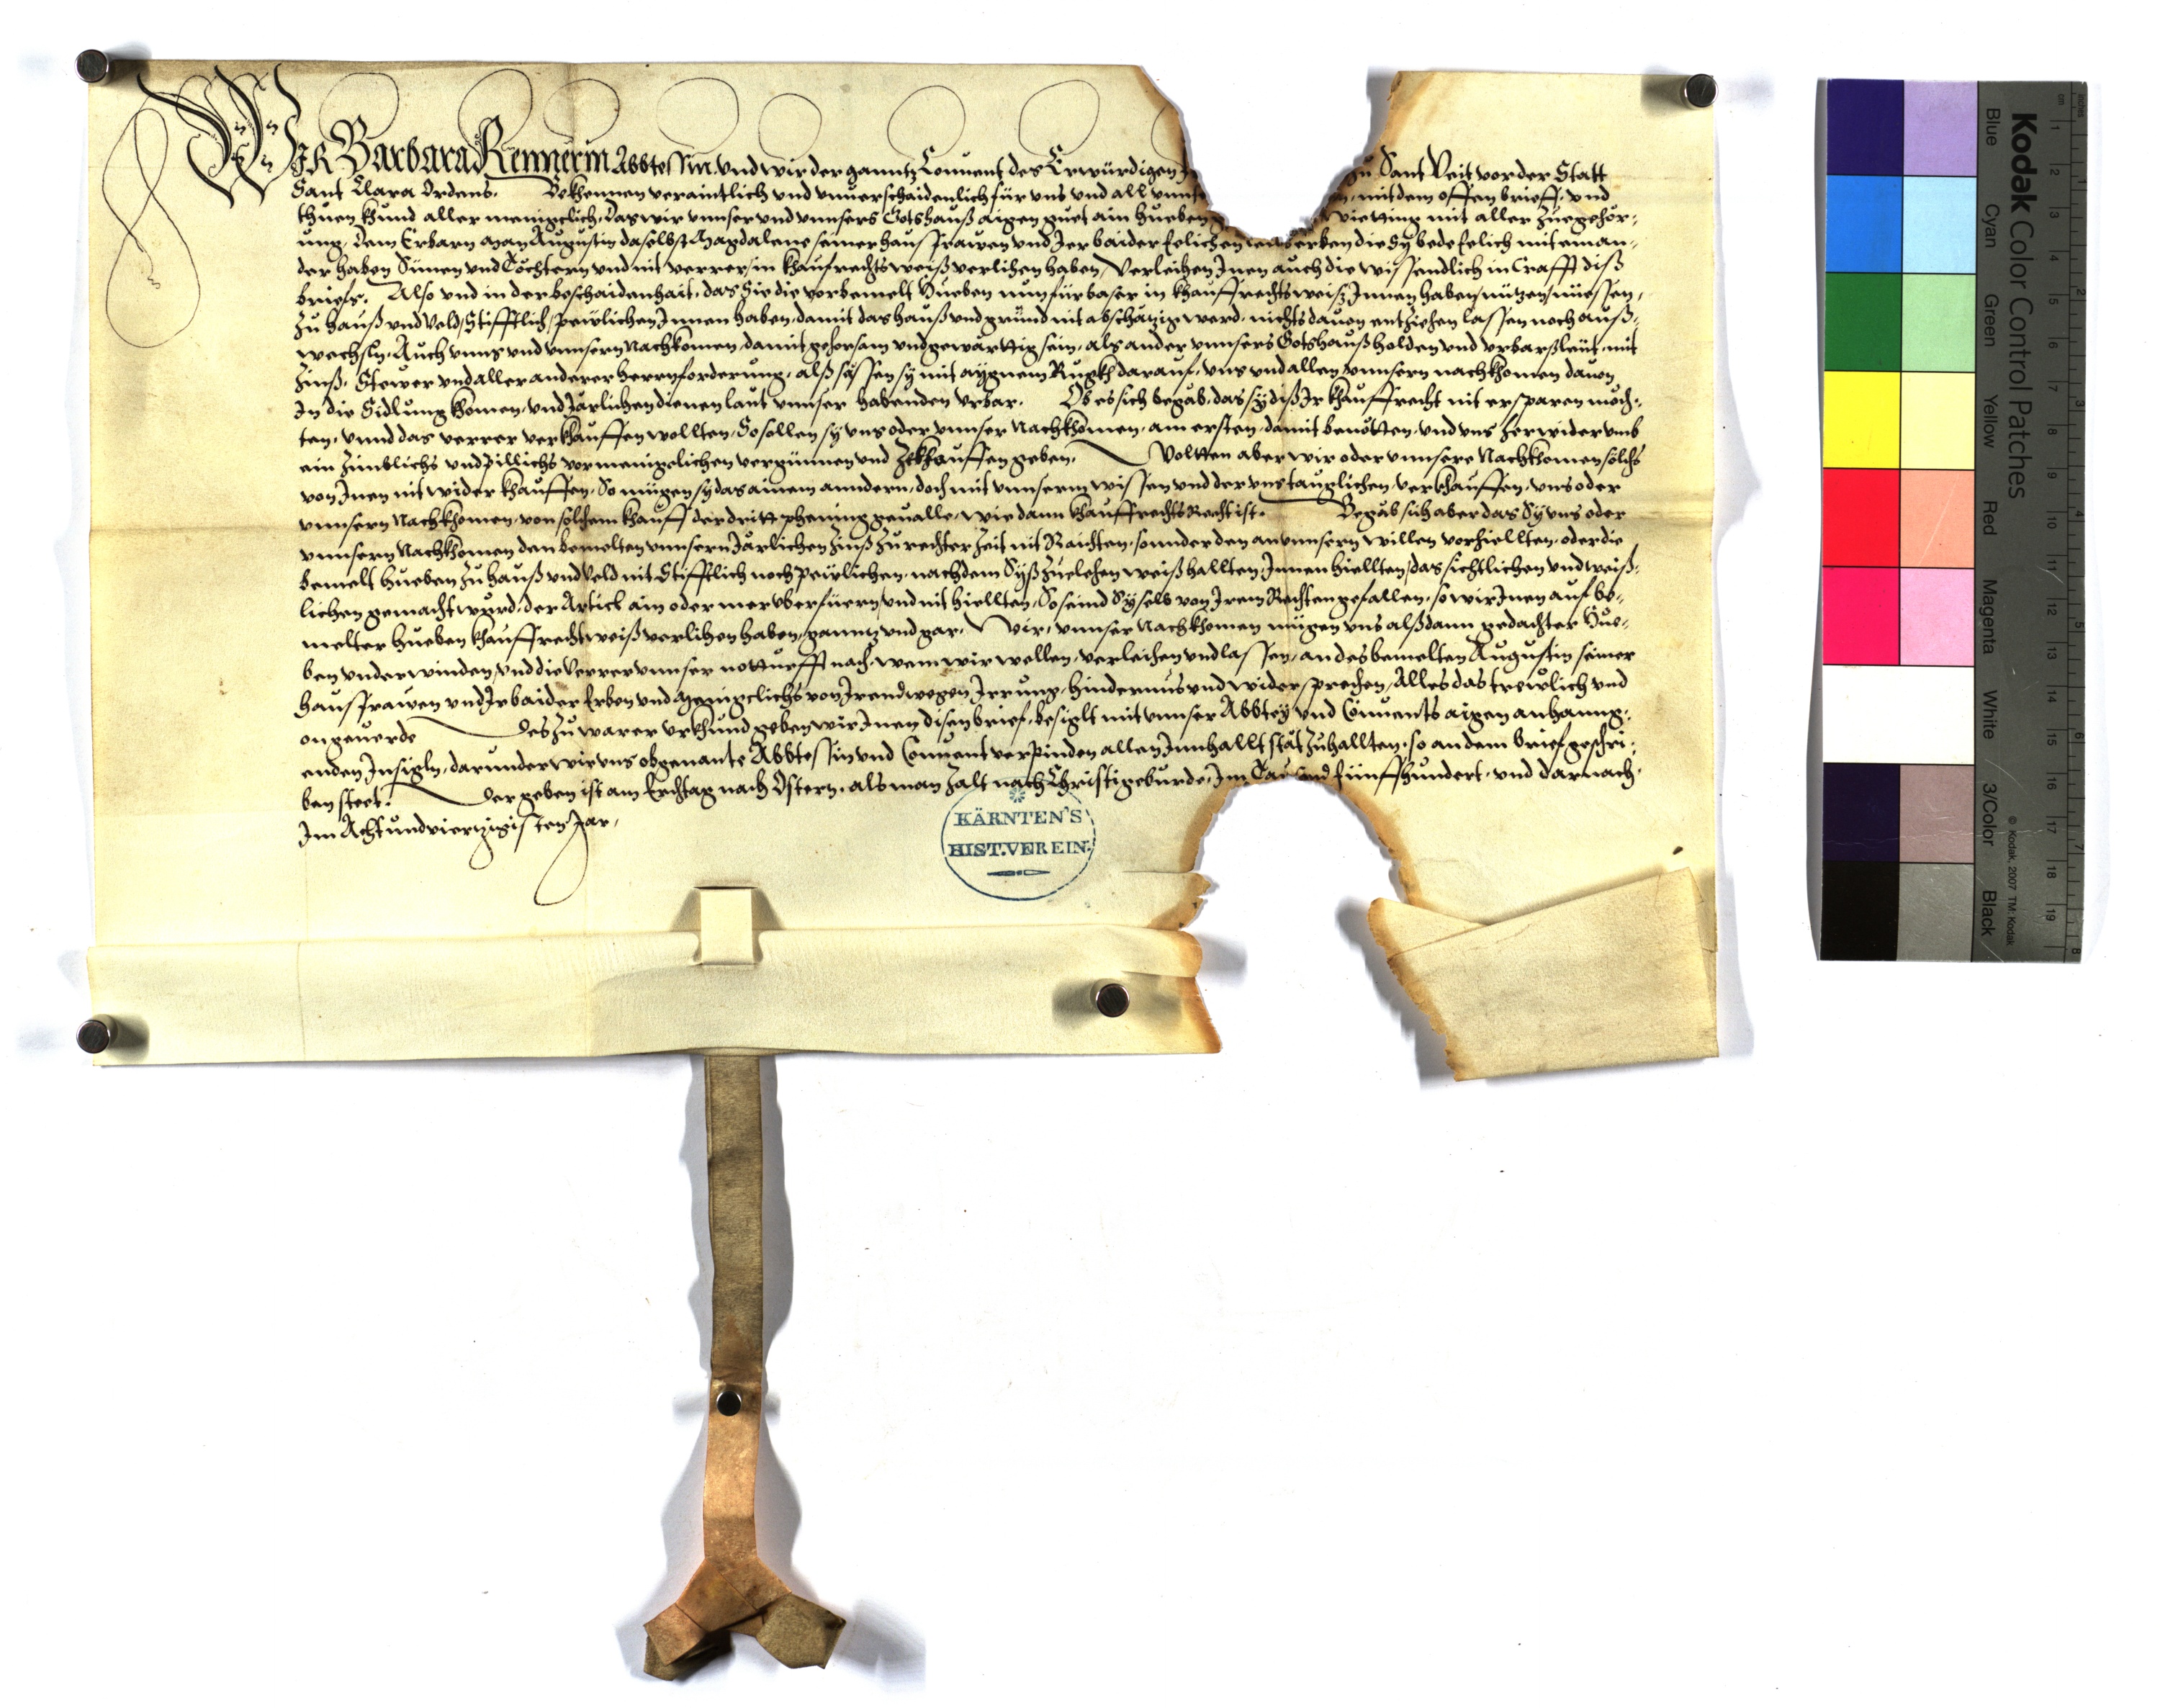 WIR Barbara Rennerin Abbtessin. Vnd wir der ganntz Conuent des Erwürdigen zu Sant Veit vor der Statt
Sant Clara Ordens. Bekhennen veraintlich vnd vnuerschaidenlich für vns vnd all vnns mit dem offen brieff. vnd
thuen khund aller menigclich, Das wir vnnser vnd vnnsers Gotshauß aigen guet ain hueben Vietting mit aller Zuegehör-
ung, dem Erbarn man Augustin daselbst Magdalene seiner hausfrawen vnd Jer baider Eelichen erben die Sy bede Eelich mit einan-
der haben Sünen vnd Töchtern vnd nit verrer, in khaufrechts weiß verlihen haben, Verleihen Jnen auch die wissendlich in Crafft diß
briefs. Also vnd in der beschaidenhait, das Sie die vorbemelt Hueben nun fürbaser in khauffrechts weiß Jnnen haben, nützen, niessen,
Zu hauß vnd Veld, Stifftlich, peülichen Jnnen haben, damit das hauß vnd gründ nit abschätzig werd, nichts dauon entziehen lassen noch auß-
wechsln, Auch vnns vnd vnnsern Nachkomen, damit gehorsam vnd gewärttig sein, als ander vnnsers Gotshauß holden vnd vrbarßleüt, mit
Zinß, Stewer vnd aller anderer herrnforderung, alß sässen sy mit aygnem Rugkh darauf, vns vnd allen vnnsern nachkhomen dauon
In die Sidlung khomen, vnd Järlichen dienen laut vnnser habenden Vrbar. Ob es sich begäb, das sy diß Jr khauffrecht nit ersparen möch-
ten, vnnd das verrer verkhauffen wollten, So sollen sy vns oder vnnser Nachkhomen, am ersten, damit benötten, vnd vns herwider vmb
ein Zimblichs vnd pillichs vor menigelichen vergünnen vnd Zekhauffen geben. Woltten aber wir oder vnnsere Nachkhomen solchs
von Jnen nit wider khauffen, So mügen sy das ainem anndern, doch mit vnnserm wissen vnd der vns tauglichen, verkhauffen, vns oder
vnnsern Nachkhomen, von solchem khauff der dritt phening geualle, wie dann khauffrechts Recht ist. Begäb sich aber das Sy vns oder
vnnsern Nachkhomen den bemelten vnnsern Järlichen Zinß Zu rechter Zeit nit Raichten, sonnder den an vnnsern willen vorhiellten, oder die
bemelt hueben Zu hauß vnd Veld nit Stifftlich noch peülichen, nachdem Sÿß Zuelehen weiß hallten, Jnnen hiellten, das sichtlichen vnd weiß-
lichen gemacht würd, der Artick ain oder mer vberfüern vnd nit hiellten, So seind Sÿ sels von Jrem Rechten gefallen, so wir Jnen auf be-
melter hueben khauffrecht weiß verlihen haben, ganntz vnd gar. Wir, vnnser Nachkhomen mügen vns alßdann gedachter Hue-
ben vnderwinden, Vnd die Verrer vnnser notturfft nach, wem wir wellen, verleihen vnd lassen, an des bemelten Augustin seiner
hausfrawen vnd Jr baider Erben vnd Menigclichs von Jrendwegen Jrrung, hindernus vnd widersprechen, Alles das trewlich vnd
ongeuerde Des Zu warer vrkhund geben wir Jnen disen brief, besiglt mit vnnser Abbtey vnd Conuents aigen anhanng-
enden Jnsigln, darunder wir vns obgenante Abbtessin vnd Conuent verpinden allen Jnnhallt stät Zuhallten, so an dem brief geschri-
ben steet. Der geben ist am Erchtag nach Ostern, als man Zalt nach Christi geburde, Im Tausend fünffhundert, vnd darnach
Im Acht vnd viertzigisten Jar.
KÄRNTEN'S
HIST. VEREIN.
Kodak Color Control Patches
Blue Cyan Green Yellow Red Magenta White 3/Color Black
© Kodak, 2007 TM: Kodak
cm 1 2 3 4 5 6 7 8 9 10 11 12 13 14 15 16 17 18 19
inches 1 2 3 4 5 6 7 8